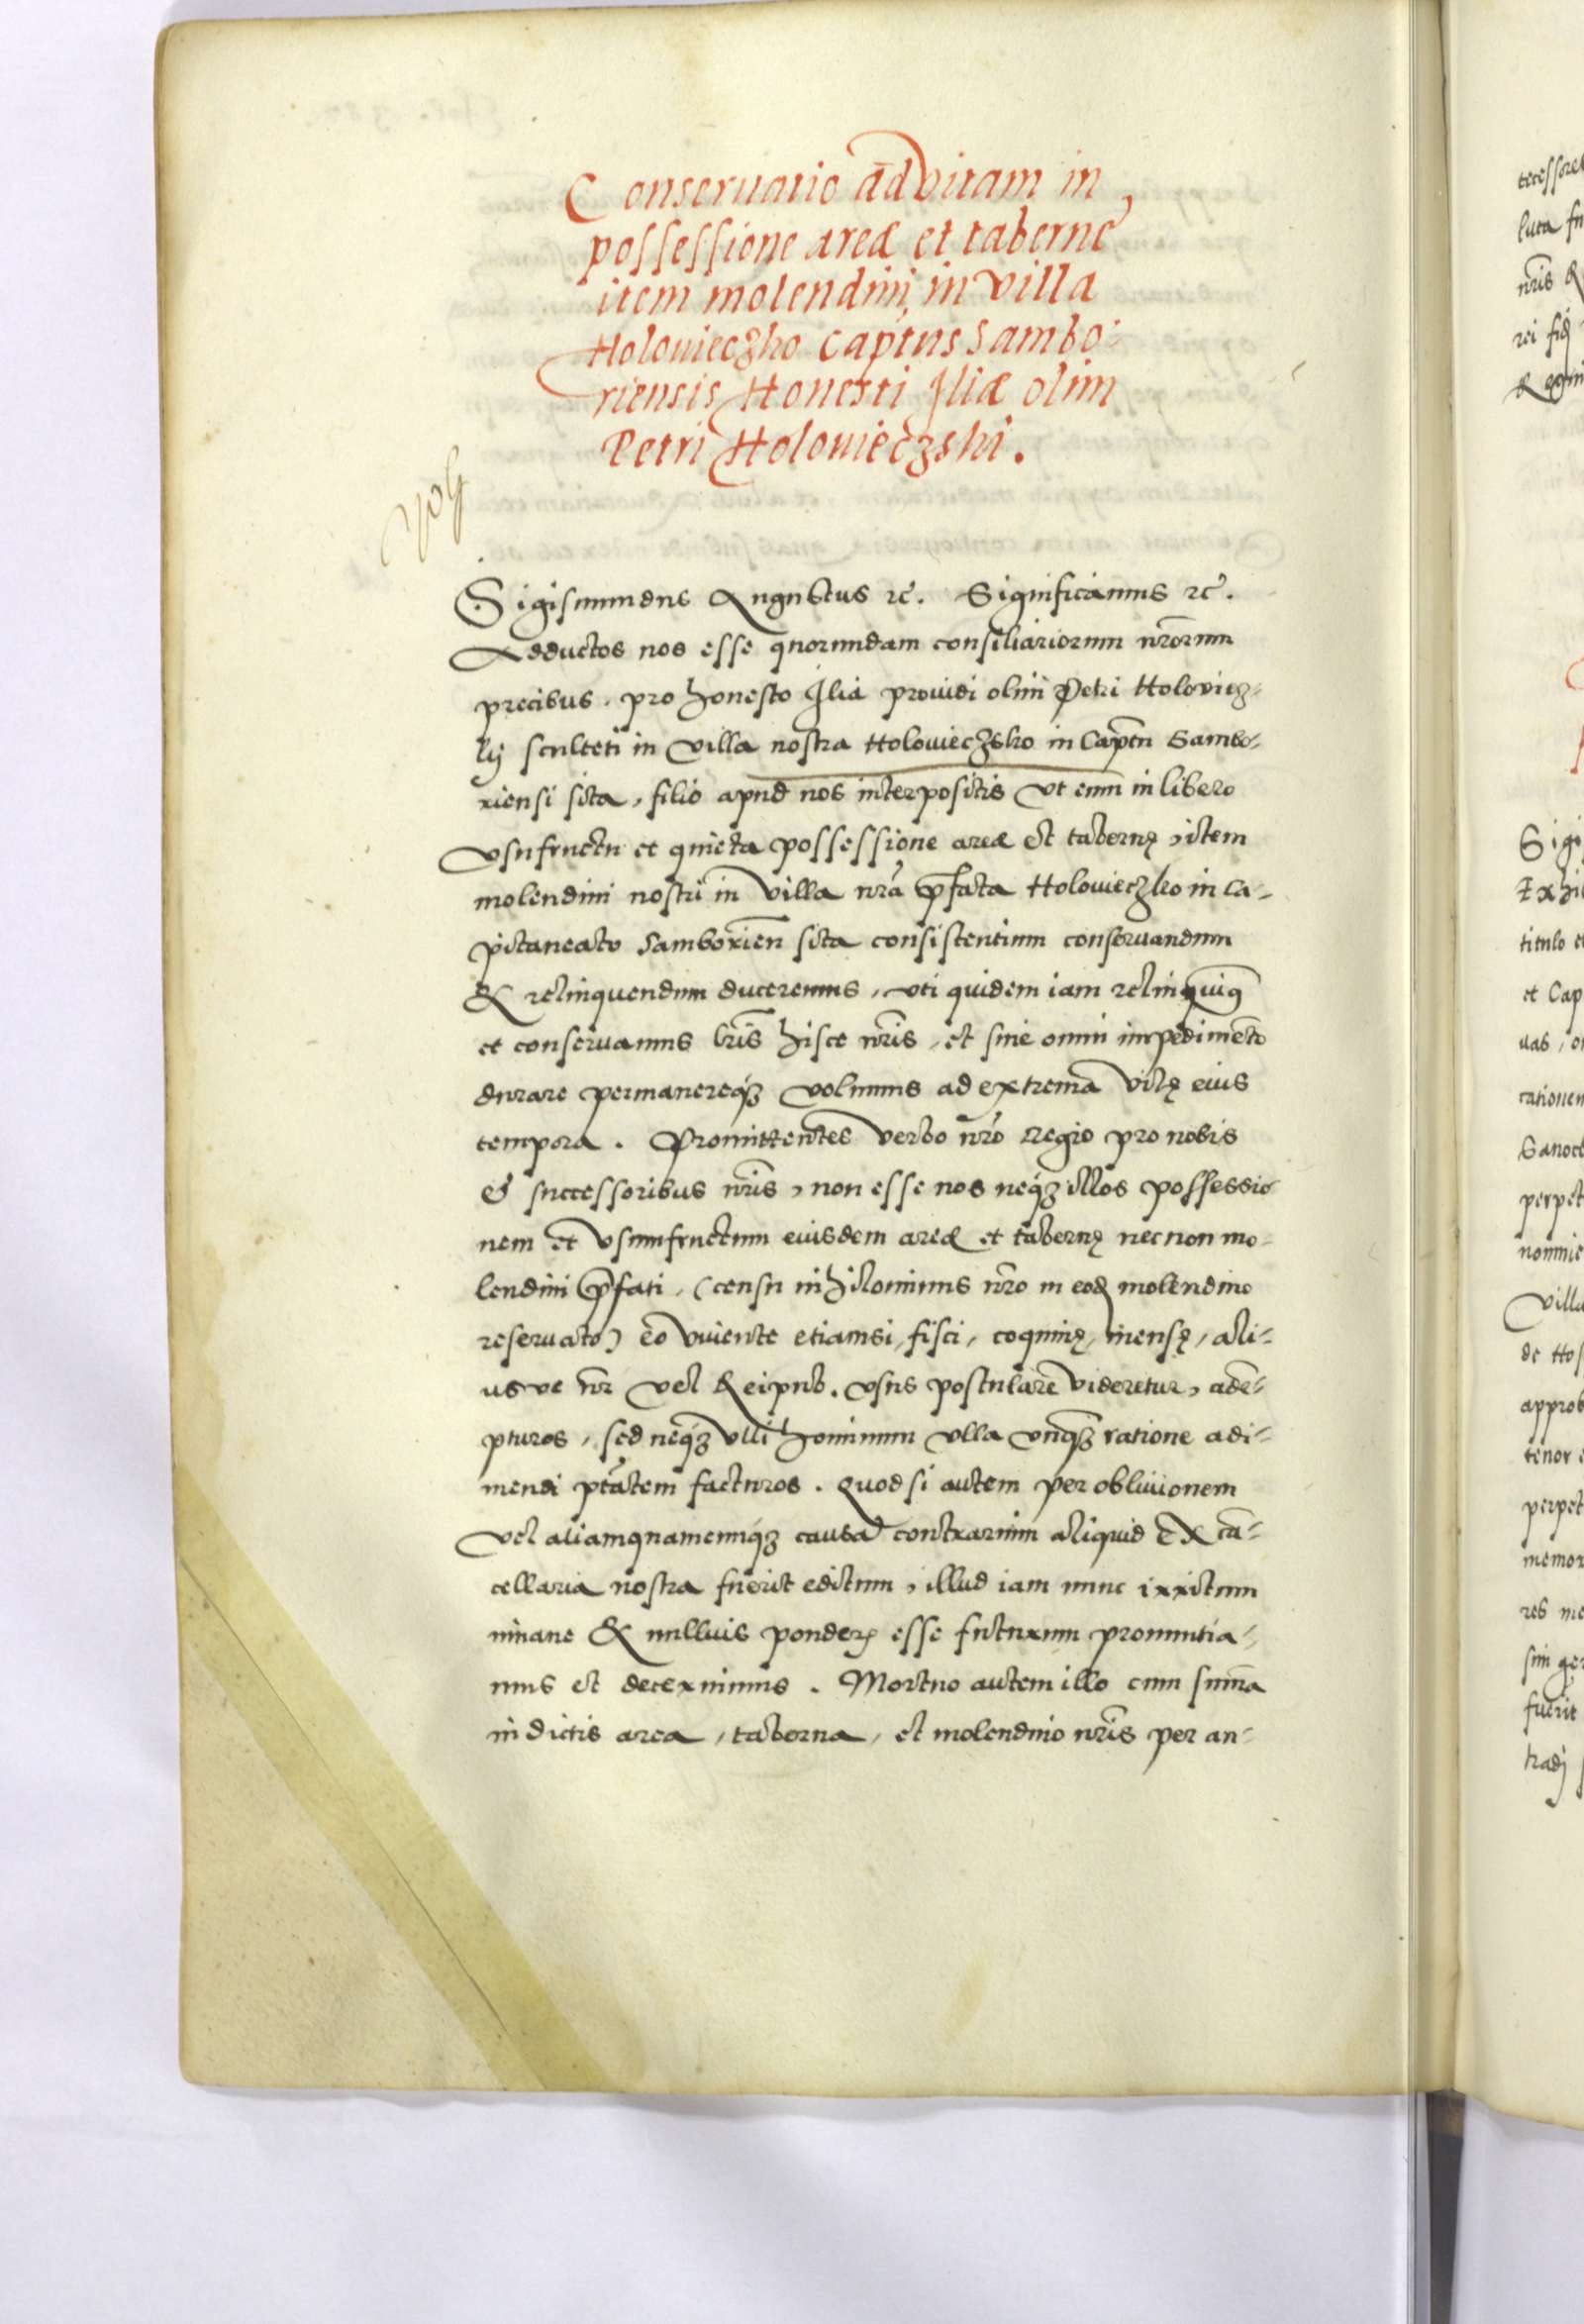 Conseruatio ad vitam in
possessione areæ et tabernę
item molendini, in villa
Holouieczko Captus Sambo-
riensis Honesti Iliæ olim
Petri Holouieczski.
Sigismundus Augustus rc̃. Significamus rc̃.
Adductos nos esse quorundam consiliariorum nr̃orum
precibus, pro honesto Ilia prouidi olim Petri Holouiecz-
kij sculteti in villa nostra Holouieczsko in Captũ Sambo-
riensi sita, filio apud nos interpositis Vt eum in libero
vsufructu et quieta possessione areæ et tabernę, item
molendini nostri in villa nr̃a p̃fata Holouieczko in Ca-
pitaneatu Samborien̄ sita consistentium conseruandum
& relinquendum duceremus, vti quidem iam relinquimꝰ
et conseruamus lr̃is hisce nr̃is, et sine omni impedimento
durare permanereqꝫ volumus ad extrema vitę eius
tempora. Promittentes verbo nr̃o regio pro nobis
& successoribus nr̃is, non esse nos neqꝫ illos possessio
nem et vsumfructum eiusdem areæ et tabernę necnon mo-
lendini p̃fati, (censu nihilominus nr̃o in eod̃ molendino
reseruato) eo viuente etiamsi, fisci, coquinę, mensę, ali-
usve nr̃ vel Reipub. vsus postulare videretur, ade-
pturos, sed neqꝫ vlli hominum vlla vnqꝫ ratione adi-
mendi ptãtem facturos. Quod si autem per obliuionem
vel aliamquamcumqꝫ causã contrarium aliquid ex cã-
cellaria nostra fuerit editum, illud iam nunc irritum
inane & nulluis ponderis esse futurum pronuntia-
mus et decernimus. Mortuo autem illo cum summa
in dictis area, taberna, et molendino nr̃is per an-